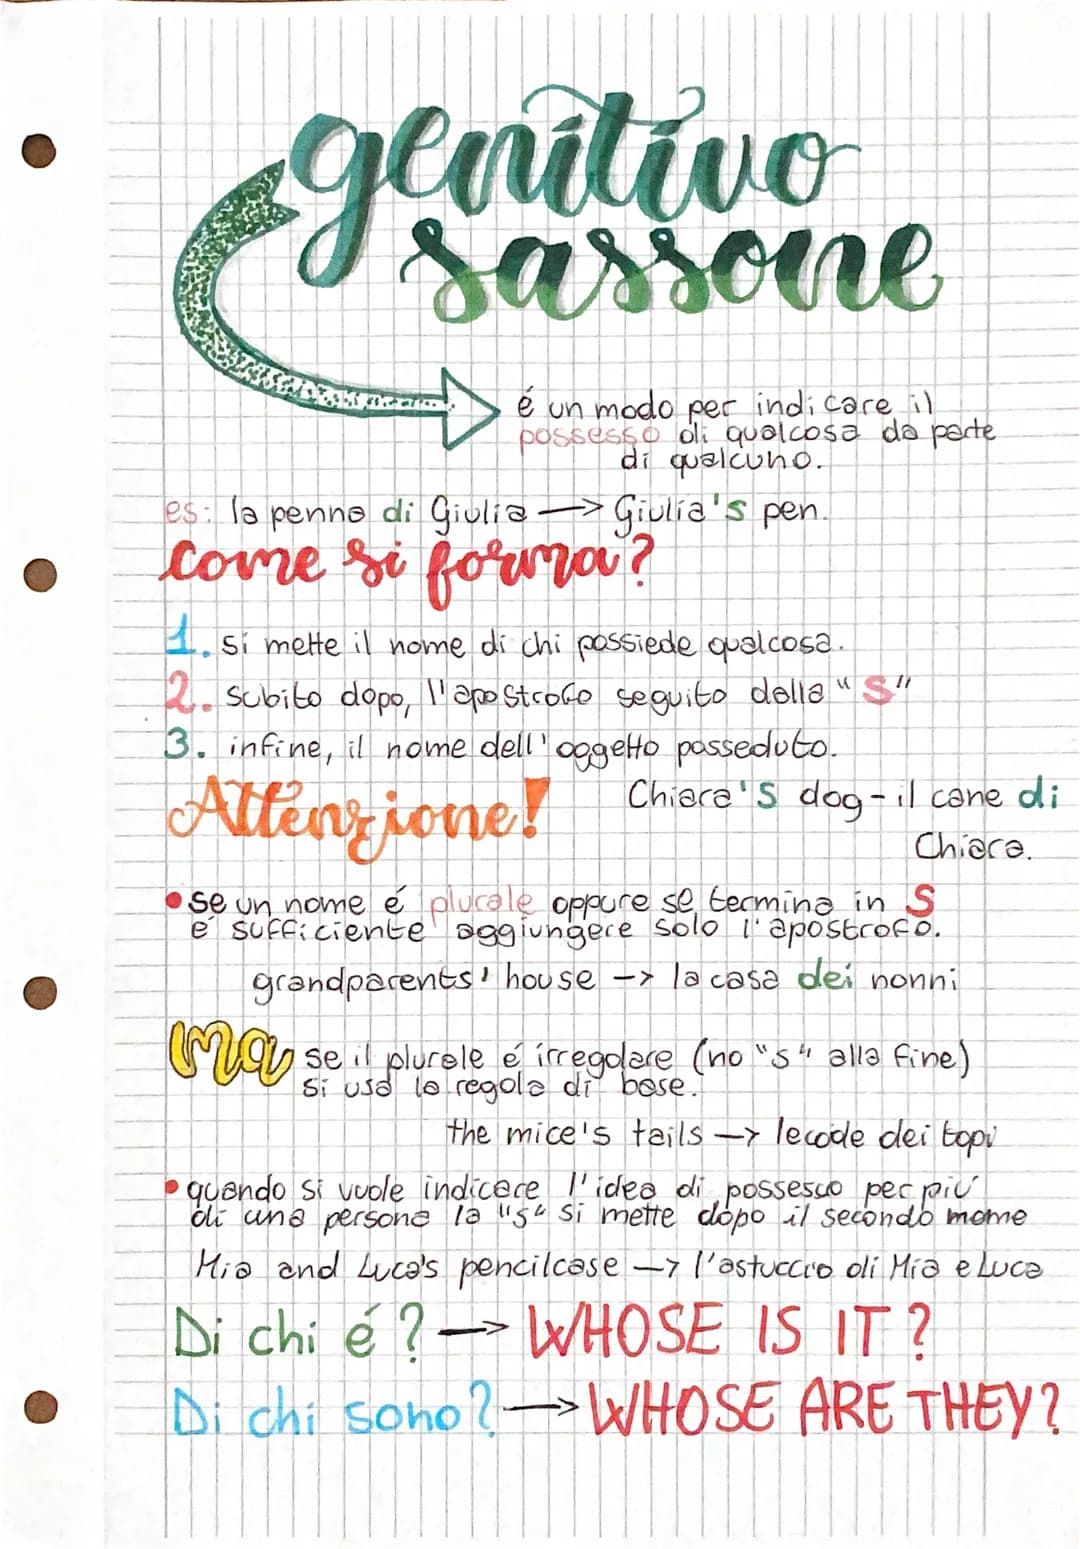 genitivo
sassone
é un modo per indicare il
possesso di qualcosa da parte
di qualcuno.
es: la penna di Giulia —> Giulia's pen.
come si forma?
1. si mette il nome di chi possiede qualcosa.
2. subito dopo, l'apostrofo seguito dalla "S"
3. infine, il nome dell'oggetto posseduto.
Attenzione!
Chiara's dog - il cane di
Chiara.
• se un nome é plurale oppure se termina in S
é sufficiente aggiungere solo l'apostrofo.
grandparents' house -> la casa dei nonni
ma se il plurale é irregolare (no "s" alla fine)
si usa la regola di base.
the mice's tails -> le code dei topi
• quando si vuole indicare l'idea di possesso per piú
di una persona la "s" si mette dopo il secondo nome
Mia and Luca's pencilcase -> l'astuccio di Mia e Luca
Di chi é? —> WHOSE IS IT?
Di chi sono? —> WHOSE ARE THEY?